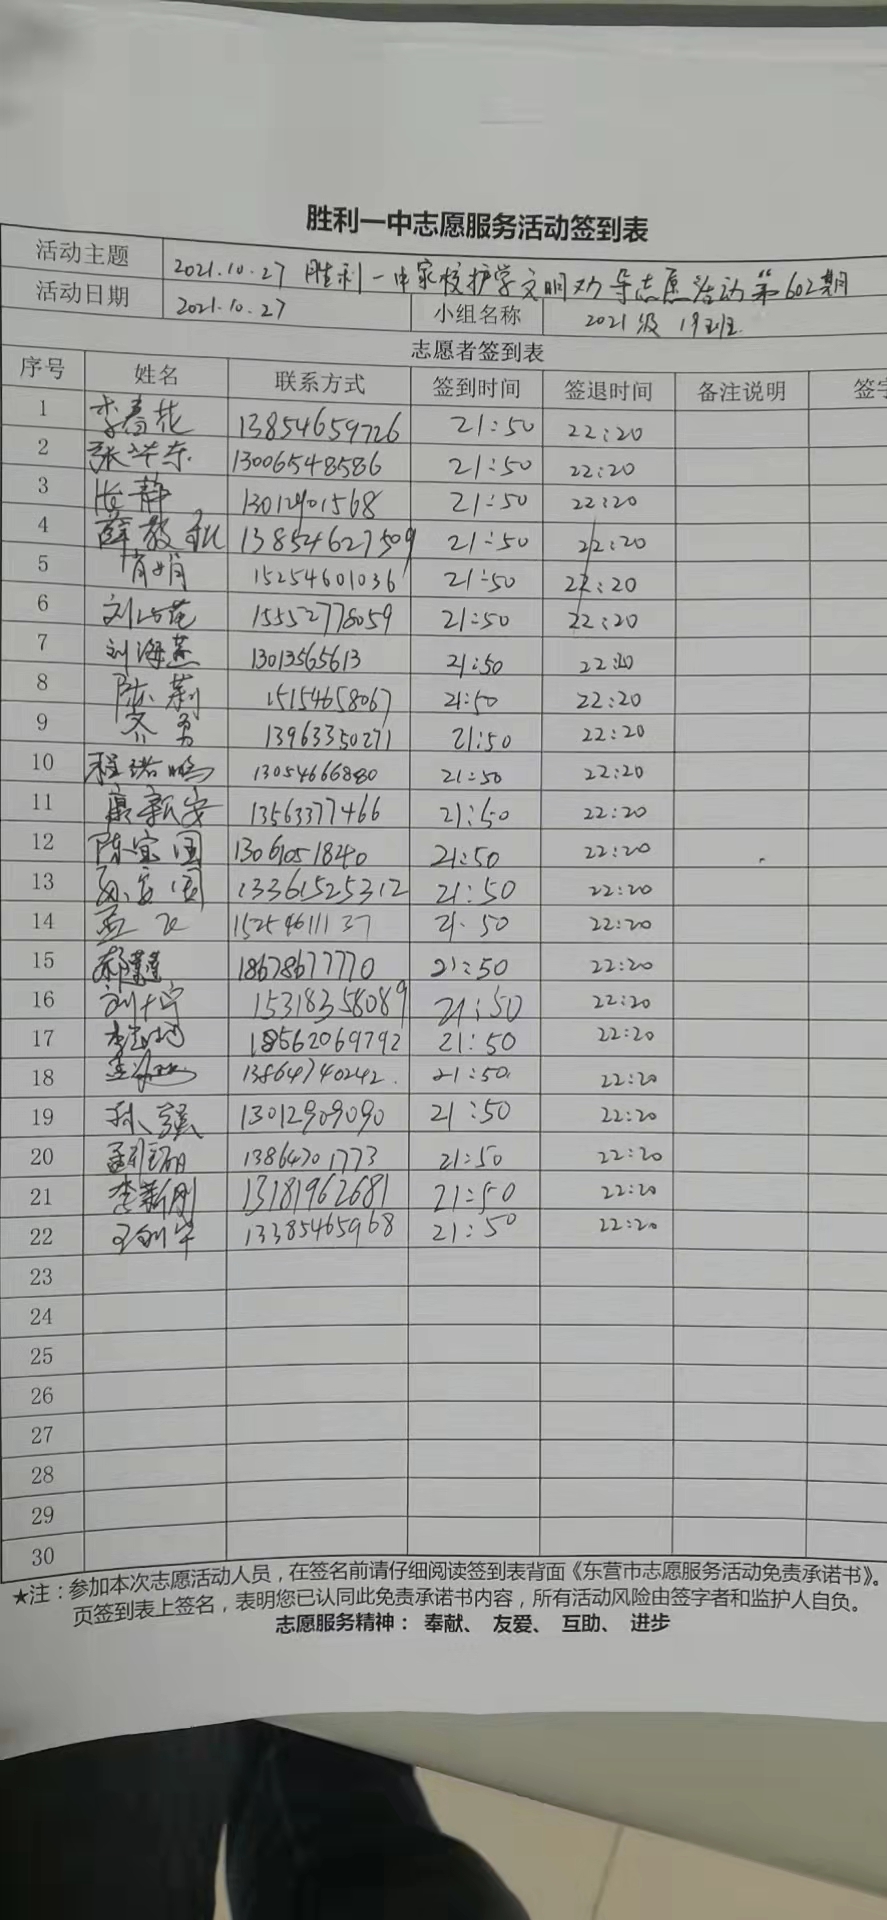 胜利一中志愿服务活动签到表
活动主题 2021.10.27 胜利一中家校护学文明劝导志愿活动第602期
活动日期 2021.10.27 小组名称 2021级 19班
志愿者签到表
序号 姓名 联系方式 签到时间 签退时间 备注说明 签字
1 李春花 13854659726 21:50 22:20
2 张华东 13006548586 21:50 22:20
3 张静 13012901568 21:50 22:20
4 薛教礼 13854627509 21:50 22:20
5 肖娟 15254601036 21:50 22:20
6 15552778059 21:50 22:20
7 刘海燕 13013565613 21:50 22:20
8 陈莉 15154658067 21:50 22:20
9 齐勇 13963350271 21:50 22:20
10 程诺鹏 13054666880 21:50 22:20
11 扈新安 13563377466 21:50 22:20
12 陈宝国 13061051840 21:50 22:20
13 13361525312 21:50 22:20
14 孟飞 15254611137 21:50 22:20
15 18678677770 21:50 22:20
16 刘宁 15318358089 21:50 22:20
17 18562069792 21:50 22:20
18 13864740242 21:50 22:20
19 孙强 13012909090 21:50 22:20
20 13864701773 21:50 22:20
21 李新刚 13181962681 21:50 22:20
22 王剑华 13385465968 21:50 22:20
23
24
25
26
27
28
29
30
★注：参加本次志愿活动人员，在签名前请仔细阅读签到表背面《东营市志愿服务活动免责承诺书》。
页签到表上签名，表明您已认同此免责承诺书内容，所有活动风险由签字者和监护人自负。
志愿服务精神： 奉献、 友爱、 互助、 进步